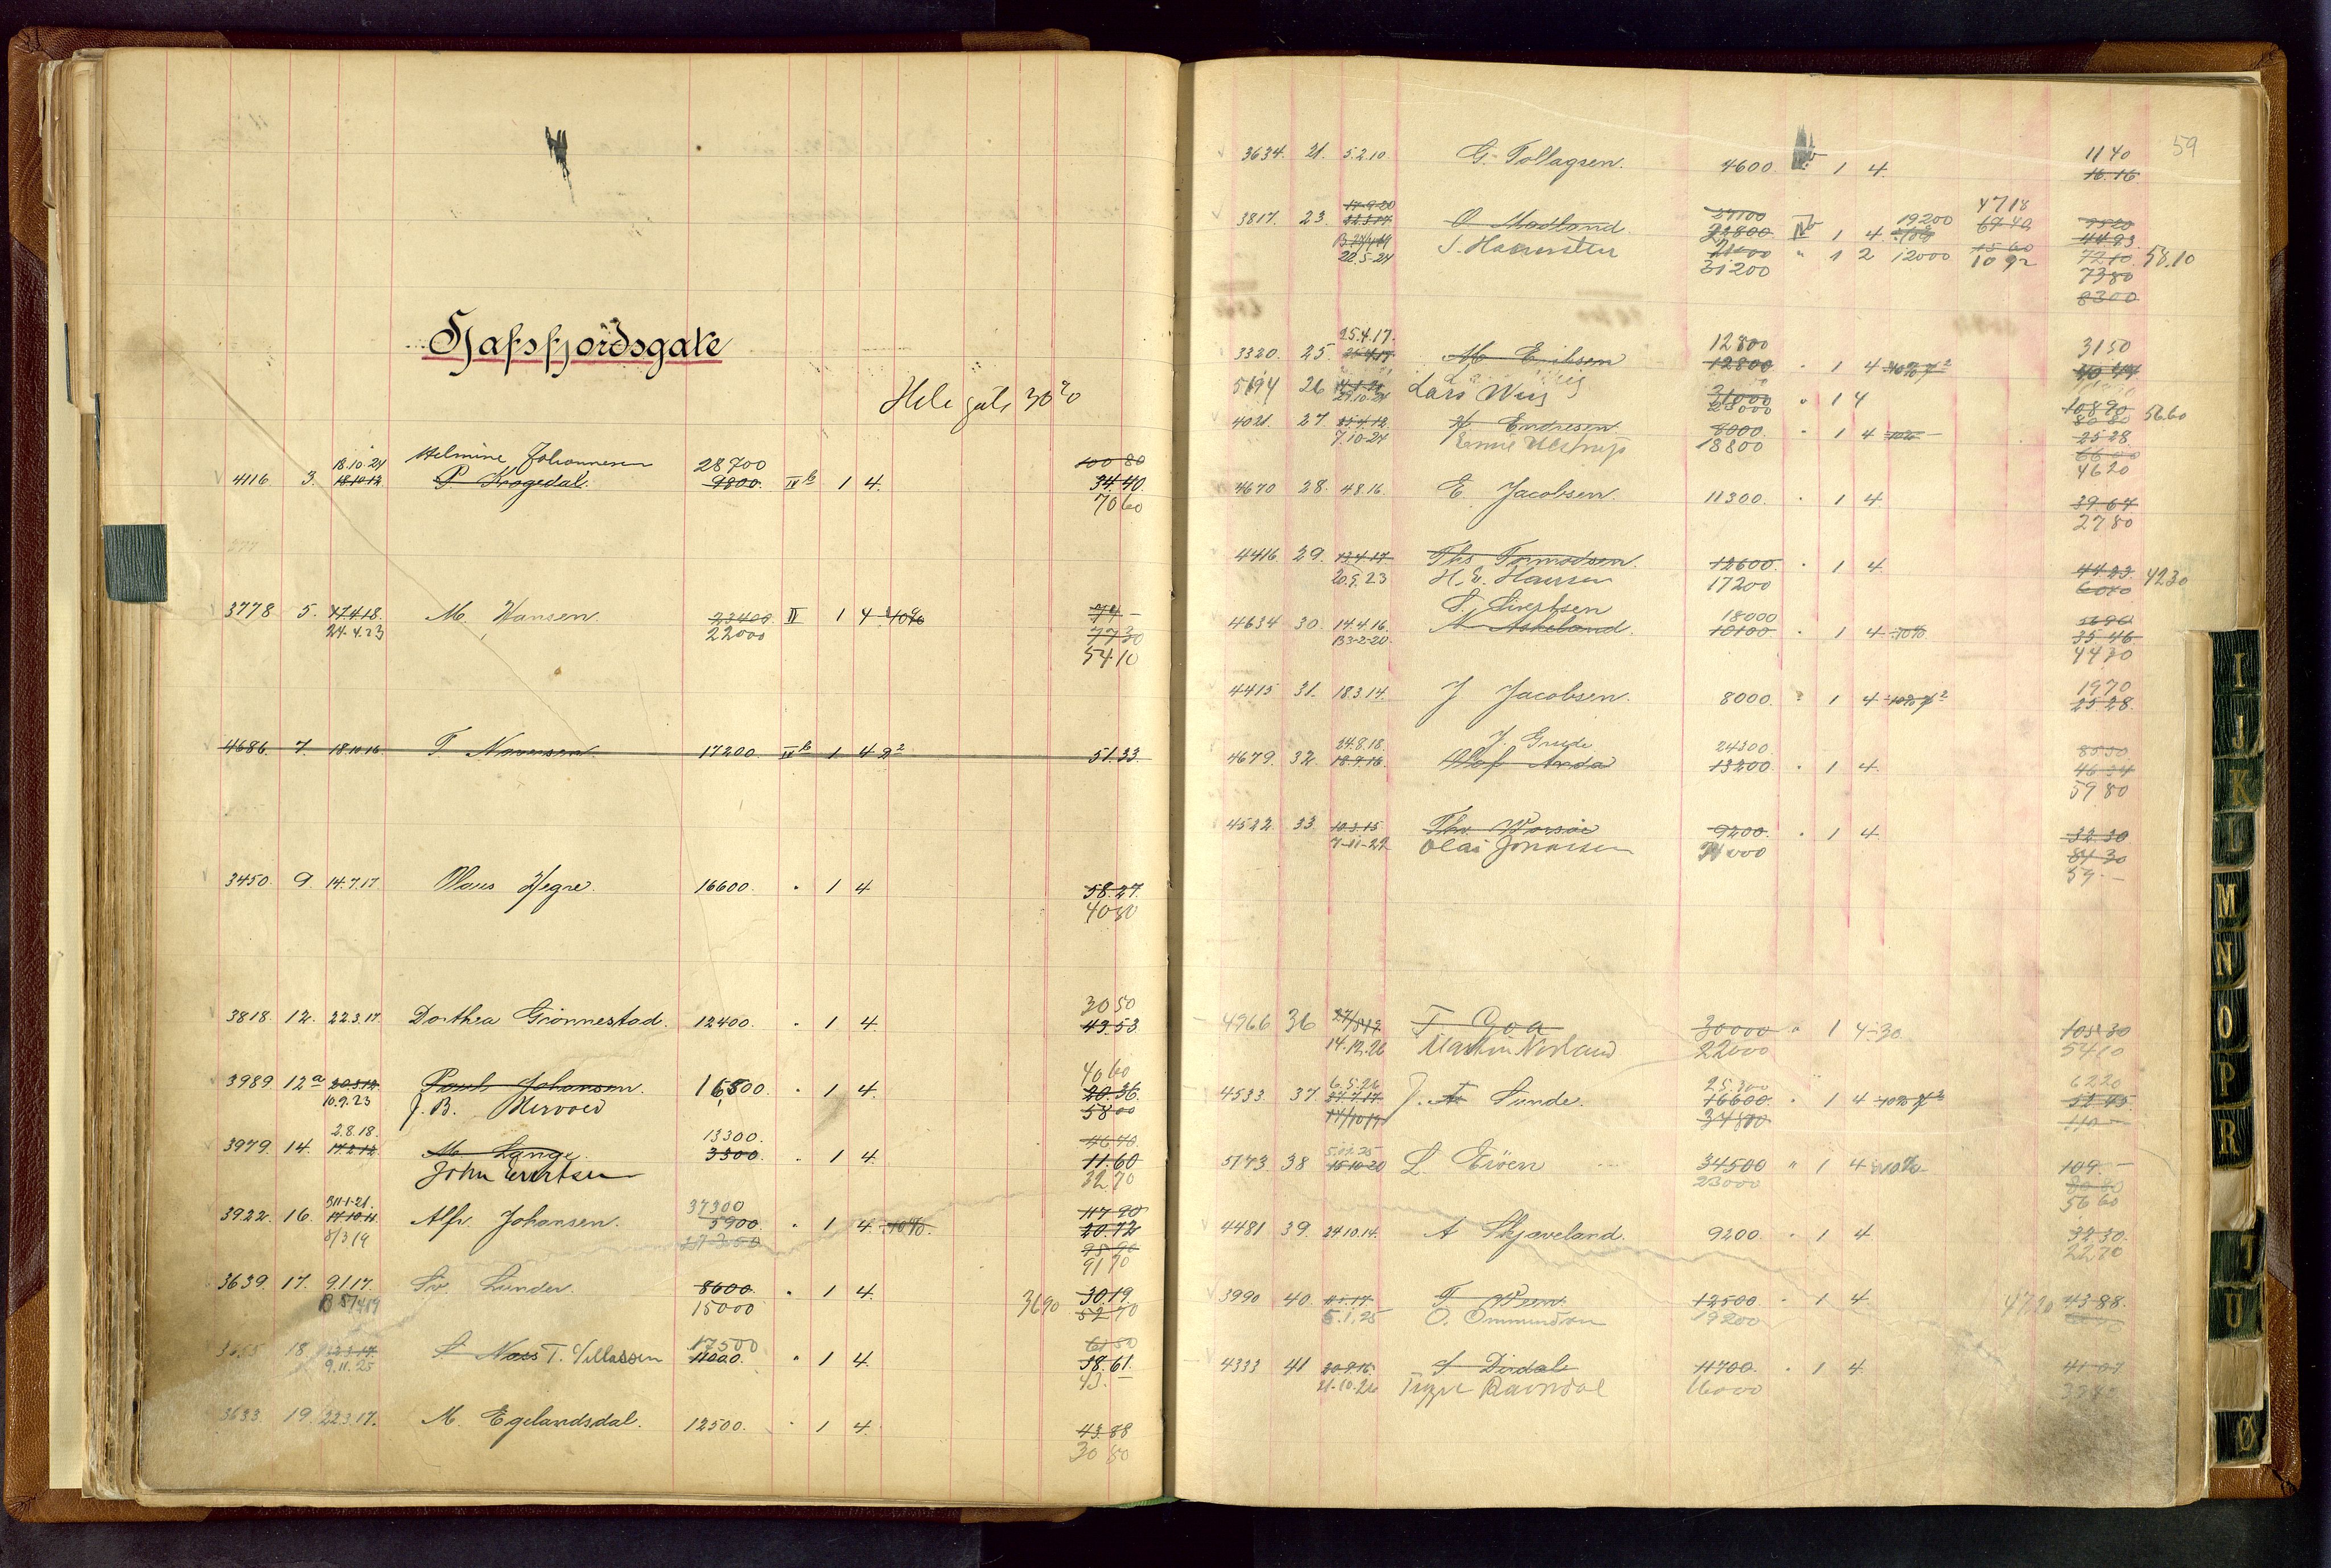 Hafsfjordsgate
Hele gata 30%
18.10.24 Helmine Johannesen 28700 100 80
4116 3. 18.10.12 P. Krogedal. 9800. IV b 1 4. 34.40.
70 60
3778 5. 17.4.18. M. Hansen 23400 II 1 4 10% 77 –
24.4.23 22000 77 30
54 10
4686 7 18.10.16 17200 IV b 1 4 2² 51.33
3450. 9. 14.7.17. Olaus Hegre. 16600. " 1 4 58.27.
40 80
30 50
3818. 12. 22.3.17. Dorthea Grönnestad. 12400. " 1 4 43 53
40 60
3989 12a 20.3.12 Paul Johansen. 16500 " 1 4. 20.36.
10.9.23 J. B. 58 00
2.8.18. 13300. 46.70
3979. 14. 17.2.12 M. Lange. 3300. " 1 4. 11.60
John Evertsen 32.70
B 11-1-21. 37300 117 90
3922. 16. 17.10.11 Alfr. Johansen. 5900. " 1 4. 10%. 20.72
8/3 19 95 90
91 70
3639. 17. 9.1.17. Sv. Lunder. 8600. " 1 4. 30.19.
15000 36 90 52 70
17500 61 50
18 S. Næss T. Villassen 11000. " 1 4. 38.61.
9.11.25 43. –
3633. 19. 22.3.17. M. Egelandsdal. 12500. " 1 4. 43.88
30 80
59
11 40
3634. 21. 5.2.10. G. Tollagsen. 4600. 1 4. 16.16.
17-9-20 27100 19200 47 18
3817. 23. 22.3.17. O. Madland 22800. IV b 1 4. 44.93.
22.5.24 " 1 2 12000 10 92 58.10
31200 73 80
83 00
25.4.17. 12800 31 50
3320. 25. M. Eriksen 12800 " 1 4 10%
5194 26 Lars 31000 " 1 4 108 90 56 60
27.10.24 23000 80 80
4021. 27. 25.4.12. Endresen 8000. " 1 4 10% 25 28.
7.10-24 18800 66 00
46 20
4670 28. 4.8.16. E. Jacobsen. 11300. " 1 4. 39 67
27 80
4416. 29. 13.4.17 Ths. Tormodsen. 12600. " 1 4. 44.23 42 30
20.9.23 H. E. Hansen 17200
S. Sivertsen 18000
4634 30. 14.4.16. A. Askeland. 10100. " 1 4. 10% 35.46.
B 3-2-20. 44 30
19 70
4415 31. 18.3.14. J Jacobsen. 8000. " 1 4 10% 25 28.
24.8.18. J. Greide 24300 85 50
4679. 32. 18.9.16. Olaf Anda 13200. " 1 4. 46 34
59 80
4522. 33. 10.3.15 9200. " 1 4. 32.30
7-11-22 Olai Jonassen 24000 84 30
59. –
4966 36 T. Goa 30000 " 1 4 – 30 105 30
14.12.26 22000 54 10
6.5.26 25.300 62 20
4533. 37. 27.7.17. J. A. Sunde. 16600. " 1 4 10%
17/10 19 34800 110 –
5.11.25
5173 38 15-10-20 L. Eiöen 34500 " 1 4 10% 109. –
23000 80 80
56 60
4481 39. 24.10.14. A Skjæveland. 9200. " 1 4. 32 30.
22 70
3990 40. T. 12500. " 1 4. 47 20 43.88.
5.1.25 O. Ommundsen 19200
4333 41 20.9.16. S Dirdal 11700. " 1 4. 41 07
21-10-26 16000
I
J
K
M
N
O
P
R
U
Ø